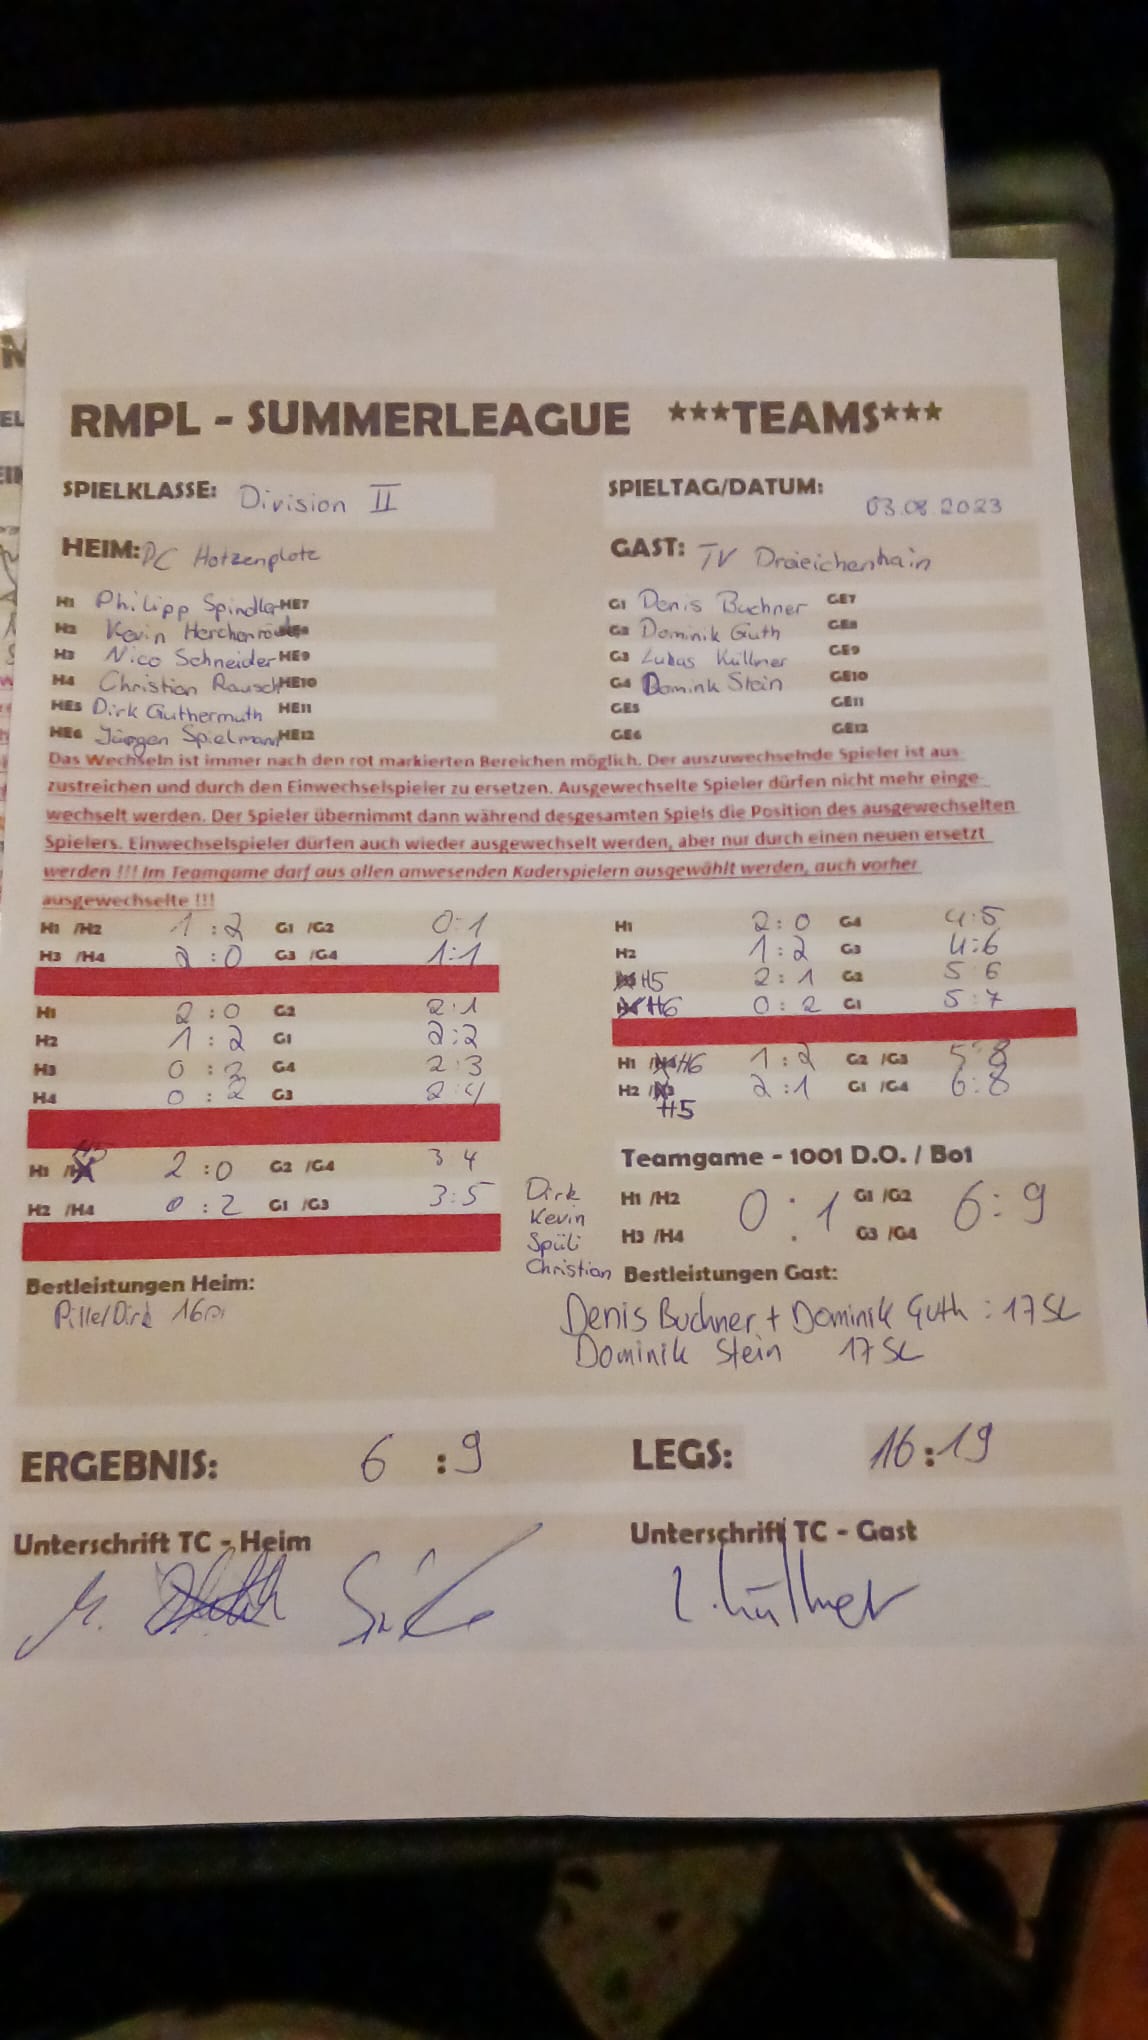 RMPL - SUMMERLEAGUE ***TEAMS***
SPIELKLASSE: Division II SPIELTAG/DATUM: 03.08.2023
HEIM: DC Hotzenplotz GAST: TV Dreieichenhain
H1 Philipp Spindler HE7 G1 Denis Buchner GE7
H2 Kevin G2 Dominik Guth GE8
H3 Nico Schneider HE9 G3 Lukas Küllmer GE9
H4 Christian Rausch HE10 G4 Domink Stein GE10
HE5 Dirk Guthermuth HE11 GE5 GE11
HE6 Jürgen Spielmann HE12 GE6 GE12
Das Wechseln ist immer nach den rot markierten Bereichen möglich. Der auszuwechselnde Spieler ist aus
zustreichen und durch den Einwechselspieler zu ersetzen. Ausgewechselte Spieler dürfen nicht mehr einge
wechselt werden. Der Spieler übernimmt dann während desgesamten Spiels die Position des ausgewechselten
Spielers. Einwechselspieler dürfen auch wieder ausgewechselt werden, aber nur durch einen neuen ersetzt
werden !!! Im Teamgame darf aus allen anwesenden Kaderspielern ausgewählt werden, auch vorher
ausgewechselte !!!
H1 /H2 1 : 2 G1 /G2 0:1
H3 /H4 2 : 0 G3 /G4 1:1
H1 2 : 0 G2 2:1
H2 1 : 2 G1 2:2
H3 0 : 2 G4 2:3
H4 0 : 2 G3 2:4
H1 /H5 2 : 0 G2 /G4 3 4
H2 /H4 0 : 2 G1 /G3 3:5
H1 2 : 0 G4 4:5
H2 1 : 2 G3 4:6
H5 2 : 1 G2 5 6
H6 0 : 2 G1 5:7
H1 /H4 H6 1 : 2 G2 /G3 5:8
H2 /H3 2 : 1 G1 /G4 6:8
H5
Teamgame - 1001 D.O. / Bo1
Dirk
Kevin
Spüli
Christian
H1 /H2 0 : 1 G1 /G2 6:9
H3 /H4 G3 /G4
Bestleistungen Heim:
Pille/Dirk 16
Bestleistungen Gast:
Denis Buchner + Dominik Guth : 17 SL
Dominik Stein 17 SL
ERGEBNIS: 6 : 9 LEGS: 16:19
Unterschrift TC - Heim Unterschrift TC - Gast
L. Küllmer